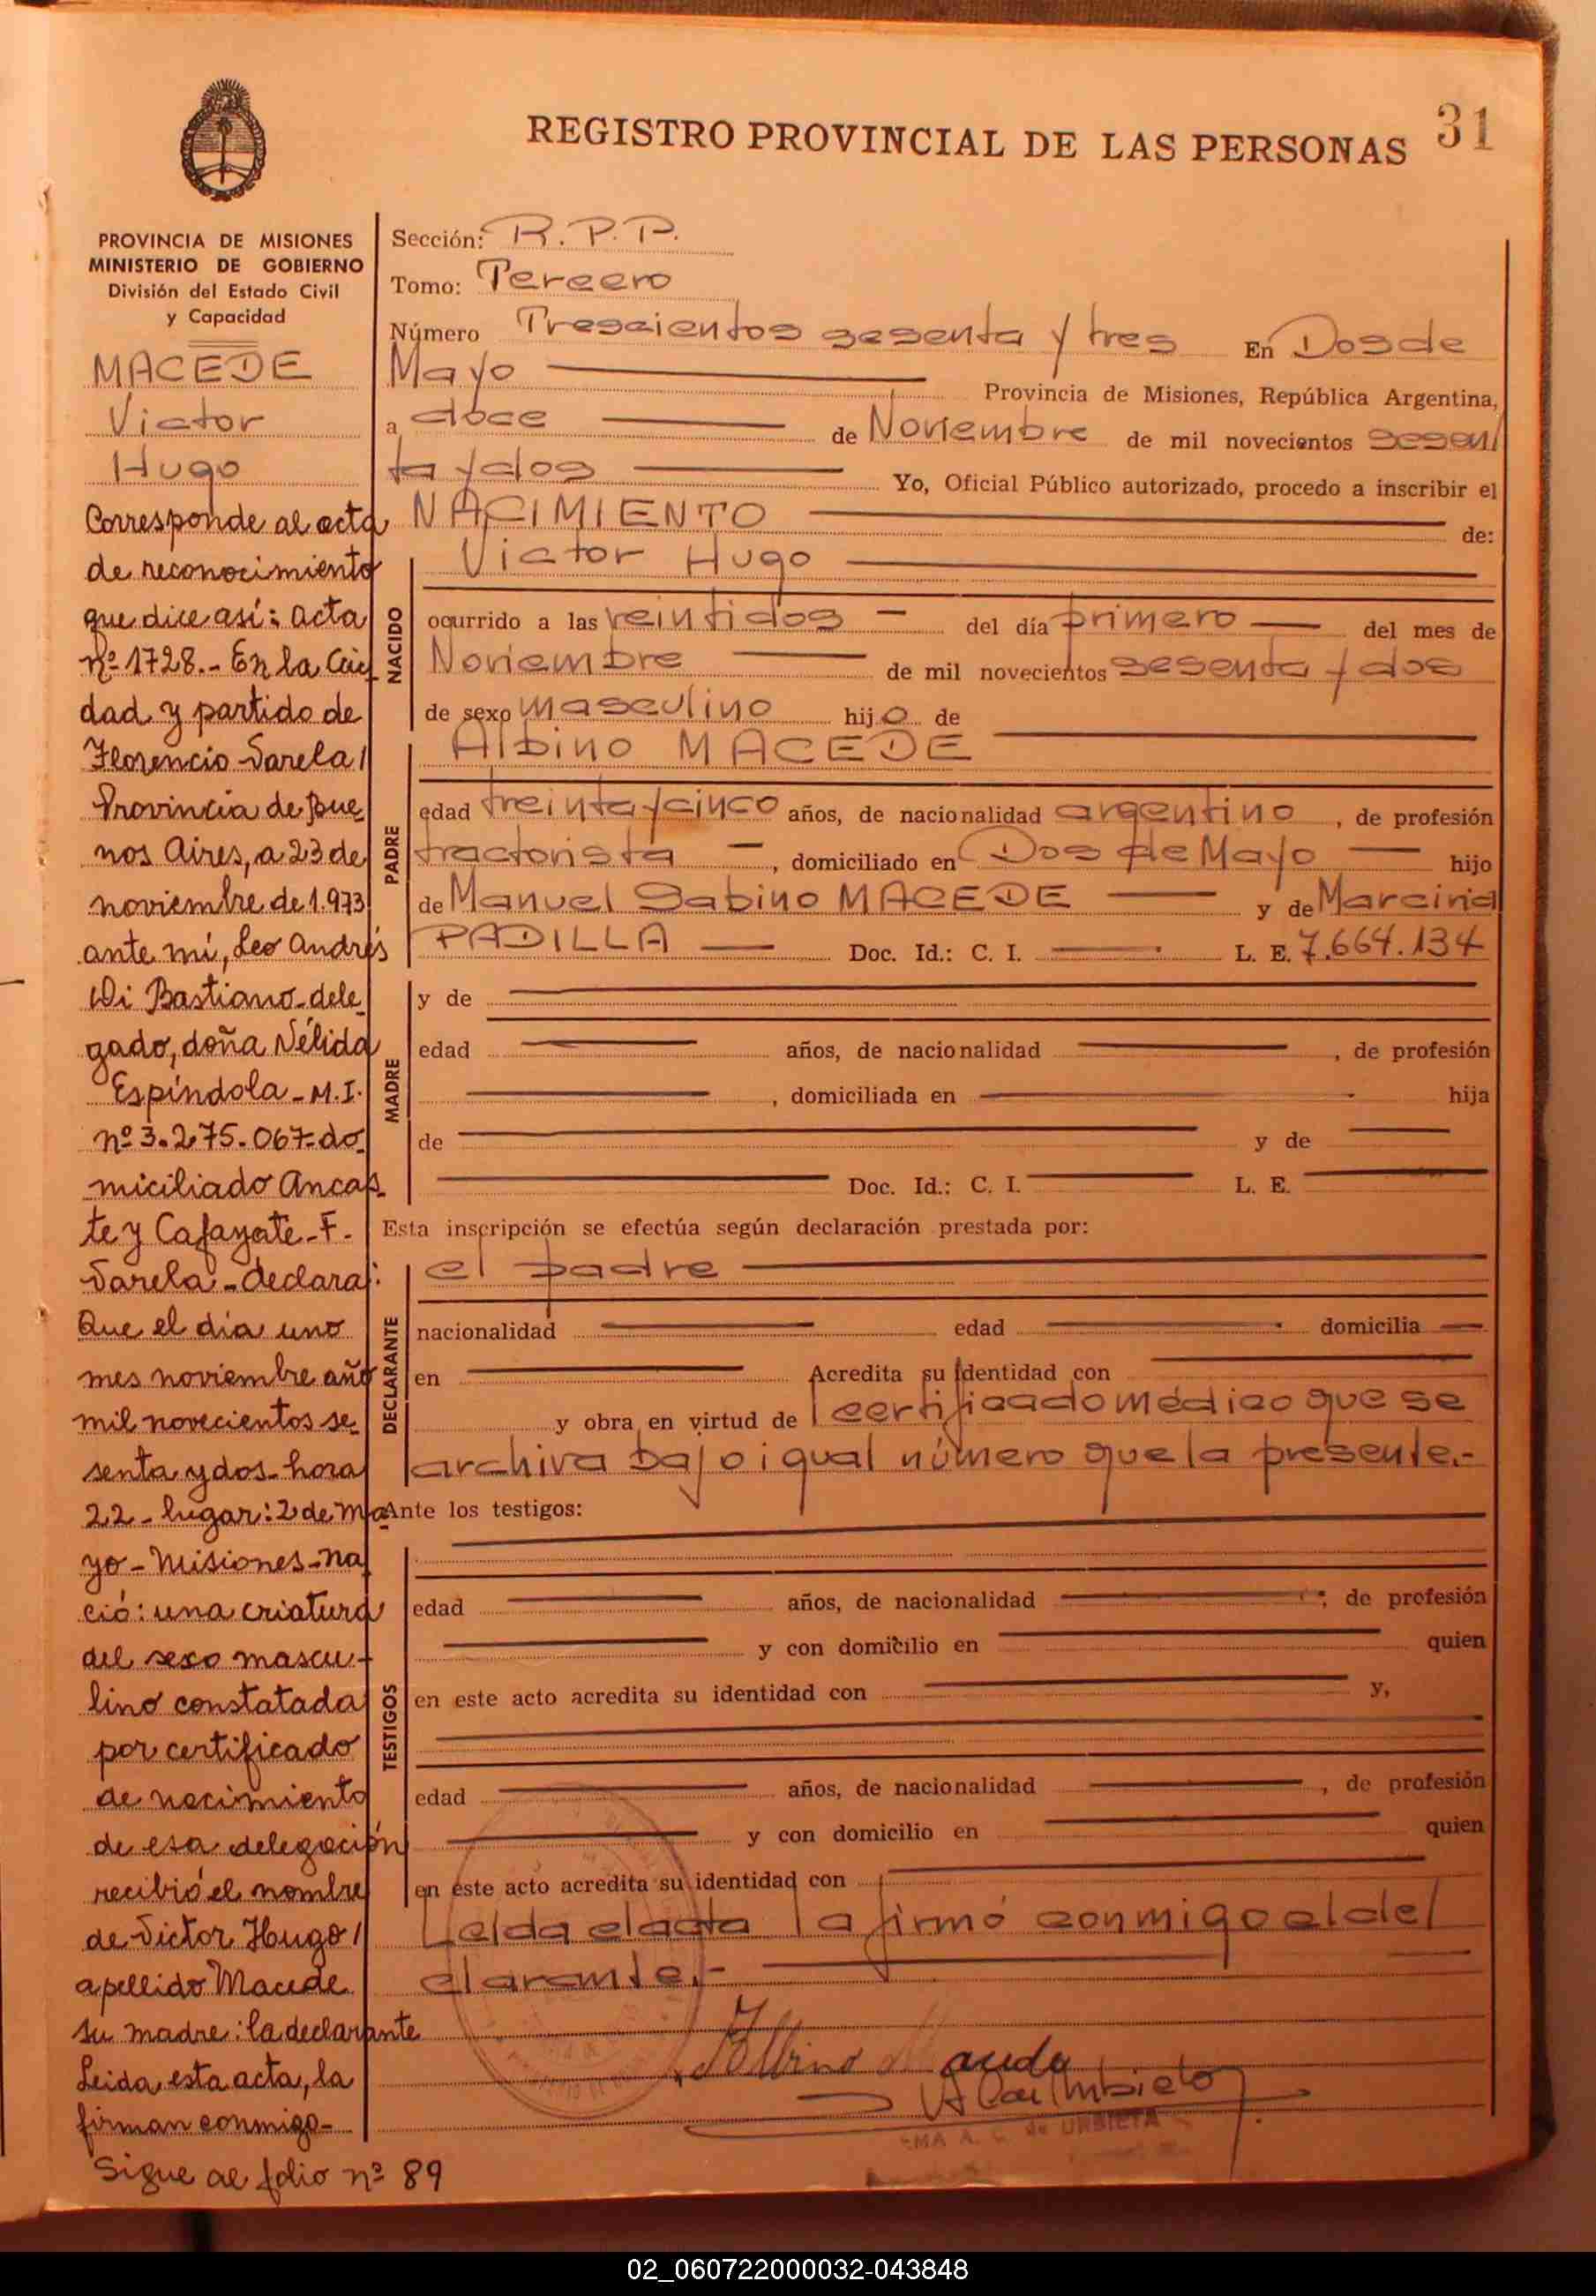 REGISTRO PROVINCIAL DE LAS PERSONAS 31
PROVINCIA DE MISIONES
MINISTERIO DE GOBIERNO
División del Estado Civil
y Capacidad
MACEDE
Victor
Hugo
Corresponde al acta
de reconocimiento
que dice así: acta
nº 1728.- En la Ciu
dad y partido de
Florencio Varela/
Provincia de Bue
nos Aires, a 23 de
noviembre de 1.973
ante mí, Leo Andrés
Di Bastiano-dele
gado, doña Nélida
Espíndola-M.I.
nº 3.275.067-do
miciliado Ancas
te y Cafayate-F.
Varela-declara:
Que el día uno
mes noviembre año
mil novecientos se
senta y dos-hora
22-lugar: 2 de Ma
yo-Misiones-na
ció: una criatura
del sexo mascu-
lino constatada
por certificado
de nacimiento
de esa delegación
recibió el nombre
de Victor Hugo/
apellido Macede
su madre: la declarante
Leida esta acta, la
firman conmigo-
Sigue al folio nº 89
Sección: R.P.P.
Tomo: Tercero
Número Trescientos sesenta y tres En Dos de
Mayo Provincia de Misiones, República Argentina,
a doce de Noviembre de mil novecientos sesen/
ta y dos Yo, Oficial Público autorizado, procedo a inscribir el
NACIMIENTO de:
NACIDO
Victor Hugo
ocurrido a las veintidos del día primero del mes de
Noviembre de mil novecientos sesenta y dos
de sexo masculino hijo de
PADRE
Albino MACEDE
edad treinta y cinco años, de nacionalidad argentino, de profesión
tractorista, domiciliado en Dos de Mayo hijo
de Manuel Sabino MACEDE y de Marcina
PADILLA Doc. Id.: C. I. L. E. 7.664.134
MADRE
y de
edad años, de nacionalidad , de profesión
, domiciliada en hija
de y de
Doc. Id.: C. I. L. E.
Esta inscripción se efectúa según declaración prestada por:
DECLARANTE
el padre
nacionalidad edad domicilia
en Acredita su identidad con
y obra en virtud de certificado médico que se
archiva bajo igual número que la presente.-
Ante los testigos:
TESTIGOS
edad años, de nacionalidad , de profesión
y con domicilio en quien
en este acto acredita su identidad con y,
edad años, de nacionalidad , de profesión
y con domicilio en quien
en este acto acredita su identidad con
Leída el acta la firmó conmigo el de/
clarante.-
Albino Macede
A. C. de URBIETA
02_060722000032-043848